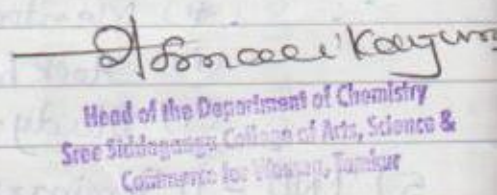 Head of the Department of Chemistry
Sree Siddaganga College of Arts, Science &
Commerce for Women, Tumkur